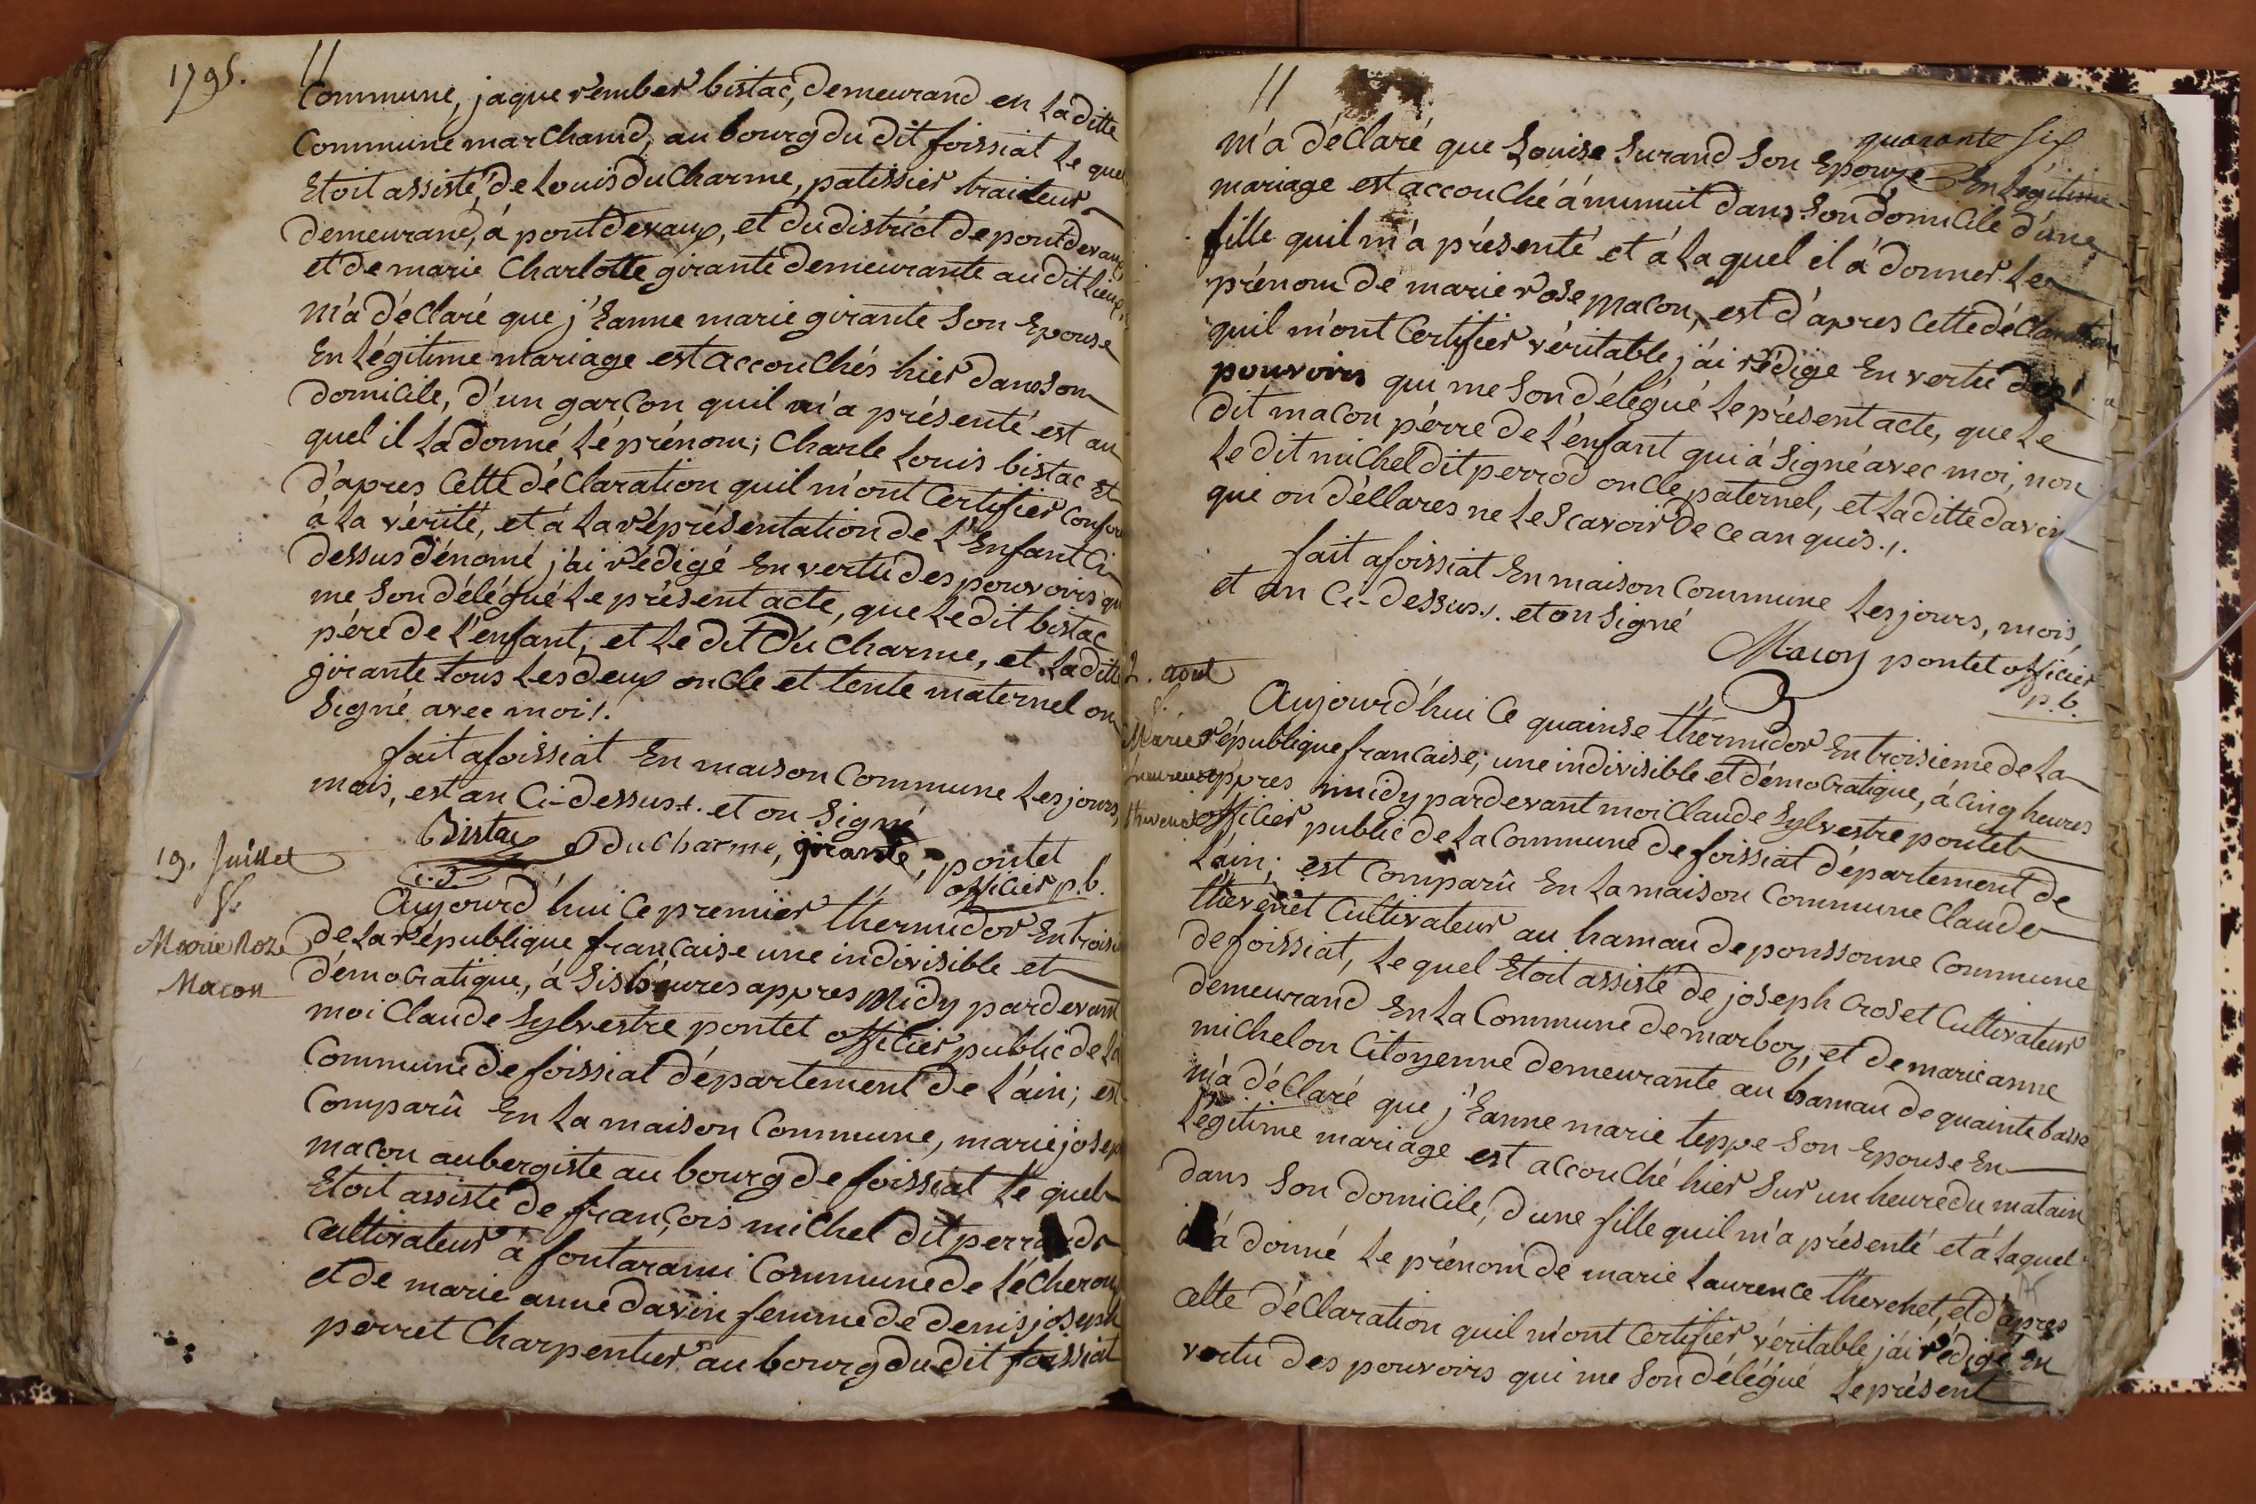 1795.
Commune, jaque rember bistac, demeurand en La ditte
Commune marchand, au bourg du dit foissiat Le quel
Etoit assisté, de Louis du Charme, patissier traiteur
demeurand, á pontdevaux, et du district de pontdevaux
et de marie Charlotte girante demeurante au dit Lieux,
m'a déClaré que j'Eanne marie girante son Epouse
En Légitime mariage est accouchés hier dans son
domicile, d'un garcon quil m'a présenté est au
quel il La donné Lé prénom; Charle Louis bistac et
d'apres Cette déClaration quil m'ont Certifier Confor
á La vérité, et á La répréséntation de L'Enfant Ci
dessus dénomé j'ai rédigé En vertu des pouvoirs qu
me son délégué Le présent acte, que Le dit bistac
pére de L'enfant, et Le dit du Charme, et La ditte
girante tous Les deux oncle et tente maternel on
Signé avec moi !.
fait afoissiat En maison Commune Les jours,
mois, est an Ci-dessus. et on Signé
Bistac DuCharme, girante, pontet
officier p.b.
19. Juillet
Marie Roze
Macon
Aujourd'hui Ce premier thermidor En trois
de La république française une indivisible et
démocratique, á sis héures appres Midy pardevant
moi Claude Sylvestre pontet officier public de La
Commune de foissiat département de L'ain; est
Comparû En La maison Commune, marie josep
macon aubergiste au bourg de foissiat Le quel
Etoit assisté de françois michel dit perr
Cultivateur á fontarami Commune de Lécherou
et de marie anne davin femme de denis joseph
perret Charpentier au bourg du dit foissiat
quarante six
m'a déClaré que Louise Surand son Epouze En Légitime
mariage est accouché á minuit dans son domicile d'une
fille quil m'a présenté et á La quel il á donner Le
prénom de marie rose macon, est d'apres Cette déClaration
quil m'ont Certifier véritable, j'ai rédige En vertu des
pouvoirs qui me son délégué Le présent acte, que Le
dit macon pérre de L'énfant qui á Signé avec moi, non
Le dit michel dit perrod oncle paternel, et La ditte davin
qui on déllares ne Le Scavoir de ce an quis.
fait afoissiat En maison Commune Les jours, mois,
et an Ci-dessus. et on Signé
Macon pontet officier
p.b.
2. aout
Marie
Laurence
thevenet
Aujourd'hui Ce quainse thérmidor En troisieme de La
république francaise; une indivisible et démocratique, á Cinq heures
appres midy pardevant moi Claude Sylvestre pontet
officier public de La Commune de foissiat département de
L'ain; est Comparû En La maison Commune Claude
thevenet Cultivateur au hamau de ponssonne Commune
de foissiat, Le quel Etoit assisté de joseph Croset Cultivateur
demeurand En La Commune de marboz, et de marie anne
michelon Citoyenne demeurante au hamau de quainte basse
m'á déClaré que j'Eanne marie teppe son Epouse En
Légitime mariage est accouché hier sur un heure du matain
dans son domicile, d'une fille quil m'a présenté et á Laquel
il á donné Le prénom de marie Laurence thevenet, et d'apres
Cette déClaration quil m'ont Certifier véritable j'ai rédigé En
vertu des pouvoirs qui me son délégué Le présent